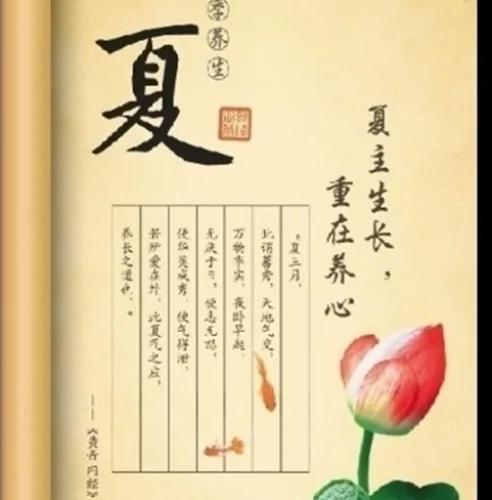 季养生
夏
夏主生长，
重在养心
“夏三月，
此谓蕃秀，天地气交，
万物华实，夜卧早起，
无厌于日，使志无怒，
使华英成秀，使气得泄，
若所爱在外，此夏气之应，
养长之道也。”
——《黄帝内经》